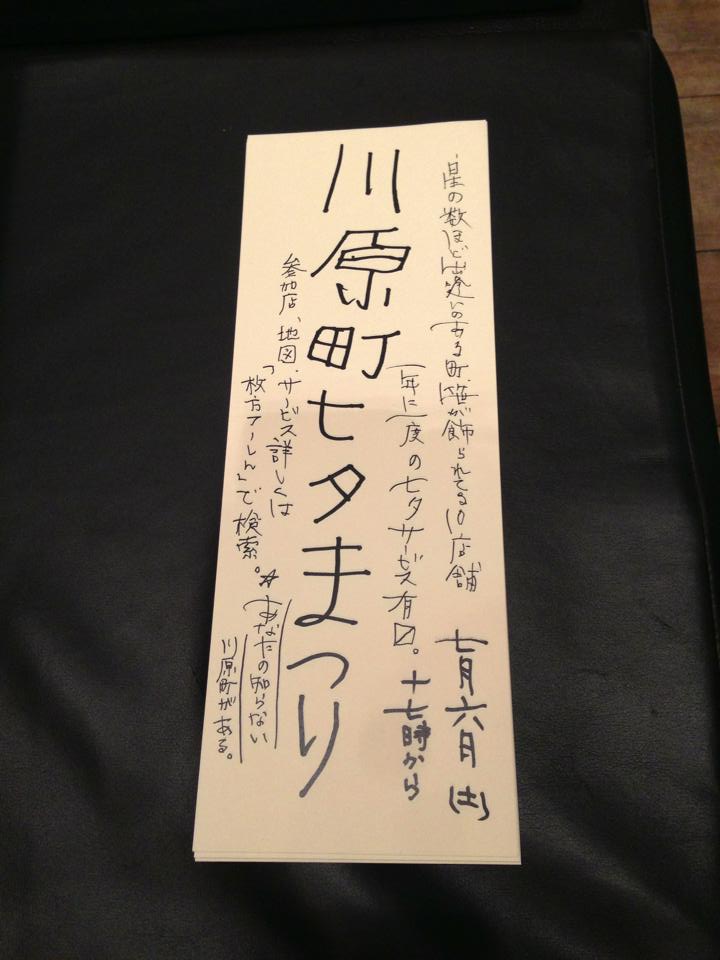 星の数ほど出逢いのある町、笹が飾られてる10店舗
七月六月(土)
一年に一度の七夕サービス有〼。
十七時から
川原町七夕まつり
参加店、地図、サービス詳しくは
「枚方アーしん」で検索。☆
あなたの知らない
川原町がある。